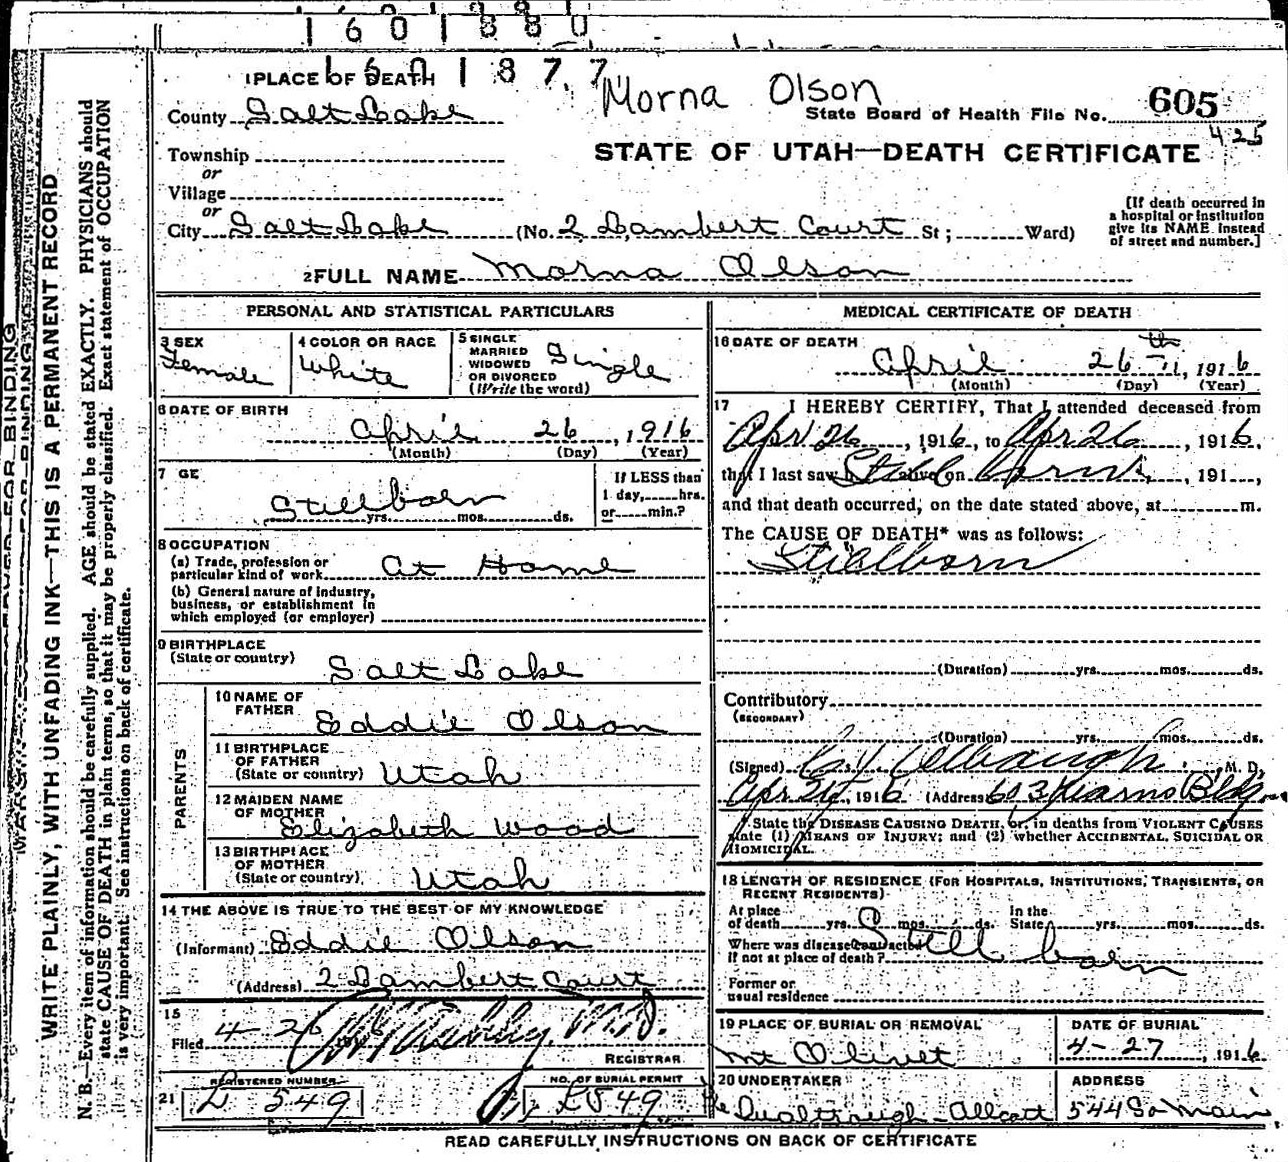 1601880
1601877
Morna Olson
1 PLACE OF DEATH
County Salt Lake
State Board of Health File No. 605
425
Township
or
STATE OF UTAH—DEATH CERTIFICATE
Village
or
City Salt Lake (No. 2 Lambert Court St; Ward)
[If death occurred in
a hospital or institution
give its NAME instead
of street and number.]
2 FULL NAME Morna Olson
PERSONAL AND STATISTICAL PARTICULARS
3 SEX
Female
4 COLOR OR RACE
White
5 SINGLE
MARRIED
WIDOWED
OR DIVORCED
(Write the word)
Single
6 DATE OF BIRTH
April 26, 1916
(Month) (Day) (Year)
7 GE
Stillborn
yrs. mos. ds.
If LESS than
1 day, hrs.
or min.?
8 OCCUPATION
(a) Trade, profession or
particular kind of work At Home
(b) General nature of industry,
business, or establishment in
which employed (or employer)
9 BIRTHPLACE
(State or country) Salt Lake
PARENTS
10 NAME OF
FATHER Eddie Olson
11 BIRTHPLACE
OF FATHER
(State or country) Utah
12 MAIDEN NAME
OF MOTHER Elizabeth Wood
13 BIRTHPLACE
OF MOTHER
(State or country) Utah
14 THE ABOVE IS TRUE TO THE BEST OF MY KNOWLEDGE
(Informant) Eddie Olson
(Address) 2 Lambert Court
15
Filed 4-26 191 M.D.
REGISTRAR
21 REGISTERED NUMBER
D 549
NO. OF BURIAL PERMIT
549
MEDICAL CERTIFICATE OF DEATH
16 DATE OF DEATH
April 26th, 1916
(Month) (Day) (Year)
17 I HEREBY CERTIFY, That I attended deceased from
Apr 26, 1916, to Apr 26, 1916,
that I last saw h alive on Still born, 191,
and that death occurred, on the date stated above, at m.
The CAUSE OF DEATH* was as follows:
Stillborn
(Duration) yrs. mos. ds.
Contributory
(SECONDARY)
(Duration) yrs. mos. ds.
(Signed) M. D.
Apr 1916 (Address) 603 Kearns Bldg
State the DISEASE CAUSING DEATH, or, in deaths from VIOLENT CAUSES
state (1) MEANS OF INJURY; and (2) whether ACCIDENTAL, SUICIDAL OR
HOMICIDAL.
18 LENGTH OF RESIDENCE (FOR HOSPITALS, INSTITUTIONS, TRANSIENTS, OR
RECENT RESIDENTS)
At place
of death yrs. mos. ds.
In the
State yrs. mos. ds.
Where was disease contracted
if not at place of death? Still born
Former or
usual residence
19 PLACE OF BURIAL OR REMOVAL
Mt Olivet
DATE OF BURIAL
4-27, 1916
20 UNDERTAKER
ADDRESS
544 So Main
READ CAREFULLY INSTRUCTIONS ON BACK OF CERTIFICATE
WRITE PLAINLY, WITH UNFADING INK—THIS IS A PERMANENT RECORD
N. B.—Every item of information should be carefully supplied. AGE should be stated EXACTLY. PHYSICIANS should
state CAUSE OF DEATH in plain terms, so that it may be properly classified. Exact statement of OCCUPATION
is very important. See instructions on back of certificate.